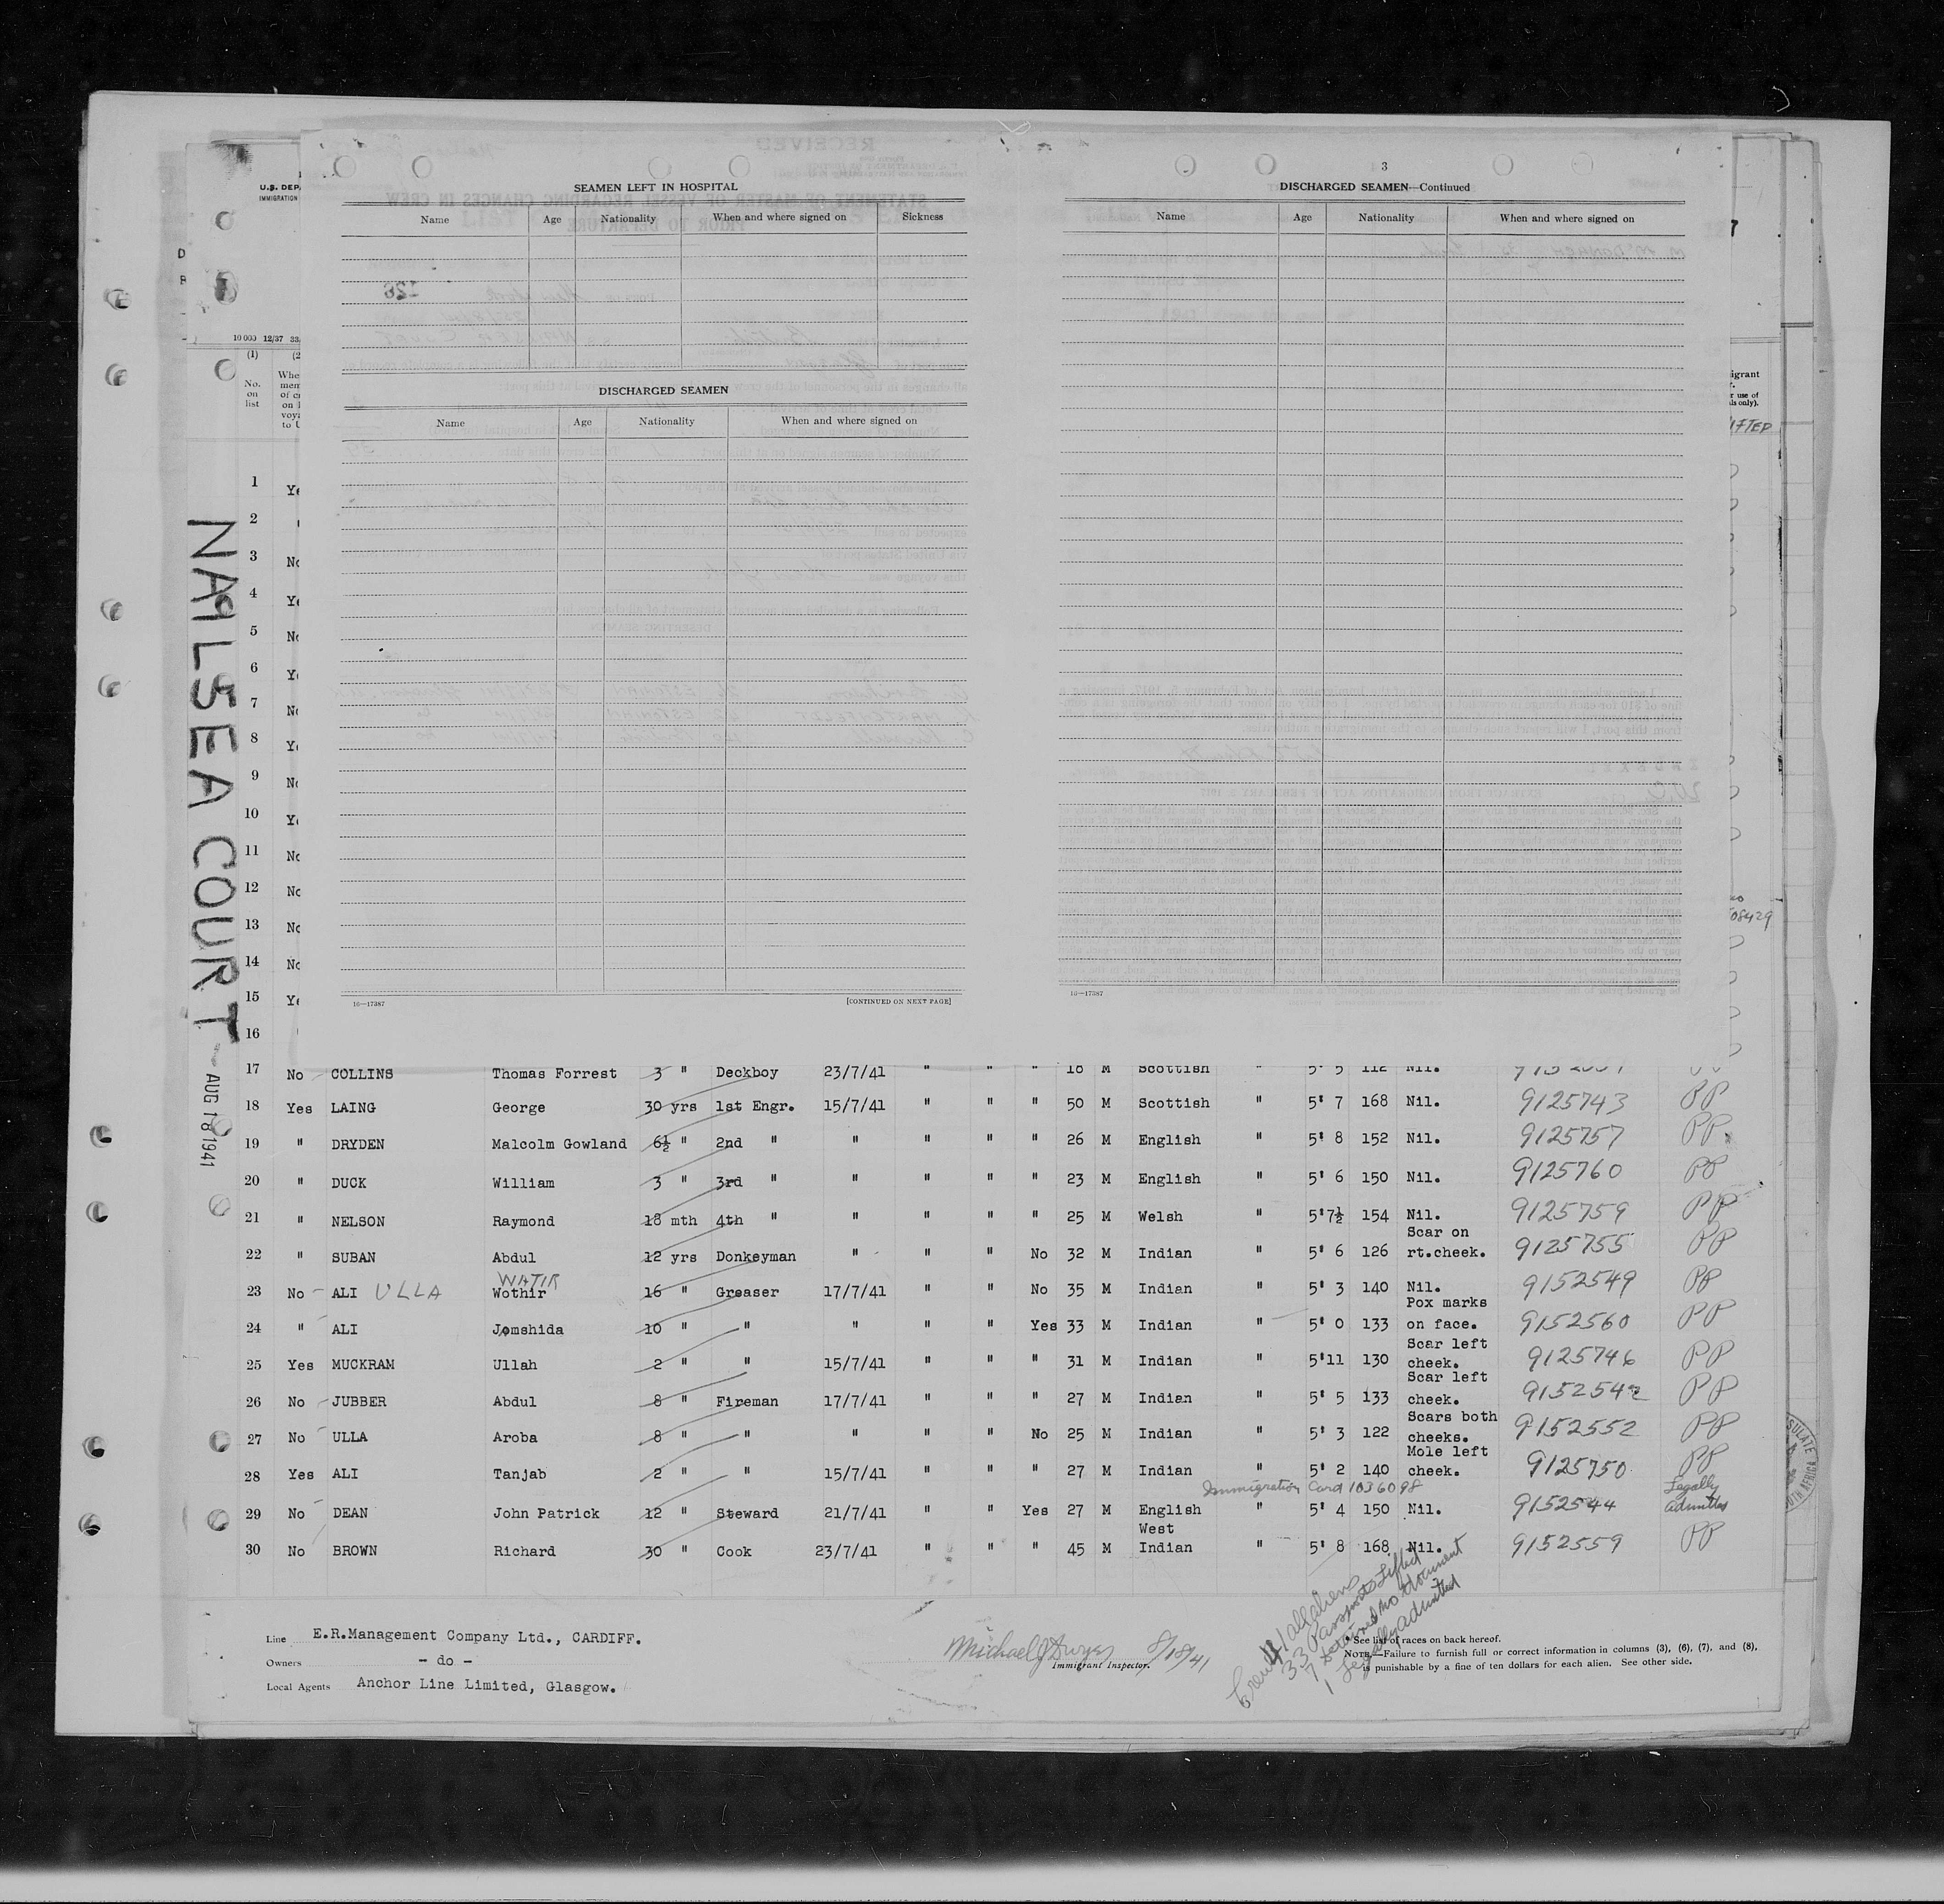 SEAMEN LEFT IN HOSPITAL
Name Age Nationality When and where signed on Sickness
DISCHARGED SEAMEN
Name Age Nationality When and where signed on
16—17387 [CONTINUED ON NEXT PAGE]
3
DISCHARGED SEAMEN—Continued
Name Age Nationality When and where signed on
16—17387
U.S. DEP
IMMIGRATION
10 000 12/37
(1)
No. on list
NAILSEA COURT — AUG 18 1941
1 Ye
2 "
3 No
4 Ye
5 No
6 Ye
7 No
8 Ye
9 No
10 Ye
11 No
12 No
13 No
14 No
15 Ye
16
17 No COLLINS Thomas Forrest 3 " Deckboy 23/7/41 " " " 18 M Scottish " 5' 5 112 Nil.
18 Yes LAING George 30 yrs 1st Engr. 15/7/41 " " " 50 M Scottish " 5' 7 168 Nil. 9125743 PP
19 " DRYDEN Malcolm Gowland 6½ " 2nd " " " " " 26 M English " 5' 8 152 Nil. 9125757 PP
20 " DUCK William 3 " 3rd " " " " " 23 M English " 5' 6 150 Nil. 9125760 PP
21 " NELSON Raymond 18 mth 4th " " " " " 25 M Welsh " 5'7½ 154 Nil. 9125759 PP
22 " SUBAN Abdul 12 yrs Donkeyman " " " No 32 M Indian " 5' 6 126 Scar on rt.cheek. 9125755 PP
23 No ALI ULLA WATIR Wothir 16 " Greaser 17/7/41 " " No 35 M Indian " 5' 3 140 Nil. 9152549 PP
24 " ALI Jomshida 10 " " " " " Yes 33 M Indian " 5' 0 133 Pox marks on face. 9152560 PP
25 Yes MUCKRAM Ullah 2 " " 15/7/41 " " " 31 M Indian " 5'11 130 Scar left cheek. 9125746 PP
26 No JUBBER Abdul 8 " Fireman 17/7/41 " " " 27 M Indian " 5' 5 133 Scar left cheek. 9152542 PP
27 No ULLA Aroba 8 " " " " " No 25 M Indian " 5' 3 122 Scars both cheeks. 9152552 PP
28 Yes ALI Tanjab 2 " " 15/7/41 " " " 27 M Indian " 5' 2 140 Mole left cheek. 9125750 PP
Immigration Card 1036098
29 No DEAN John Patrick 12 " Steward 21/7/41 " " Yes 27 M English " 5' 4 150 Nil. 9152544 Legally admitted
30 No BROWN Richard 30 " Cook 23/7/41 " " " 45 M West Indian " 5' 8 168 Nil. 9152559 PP
Line E.R.Management Company Ltd., CARDIFF.
Owners - do -
Local Agents Anchor Line Limited, Glasgow.
Michael J Dwyer 8/18/41
Immigrant Inspector.
Crew 41 all aliens
33 Passports Lifted
7 detained no document
1 Legally admitted
* See list of races on back hereof.
NOTE.—Failure to furnish full or correct information in columns (3), (6), (7), and (8),
is punishable by a fine of ten dollars for each alien. See other side.